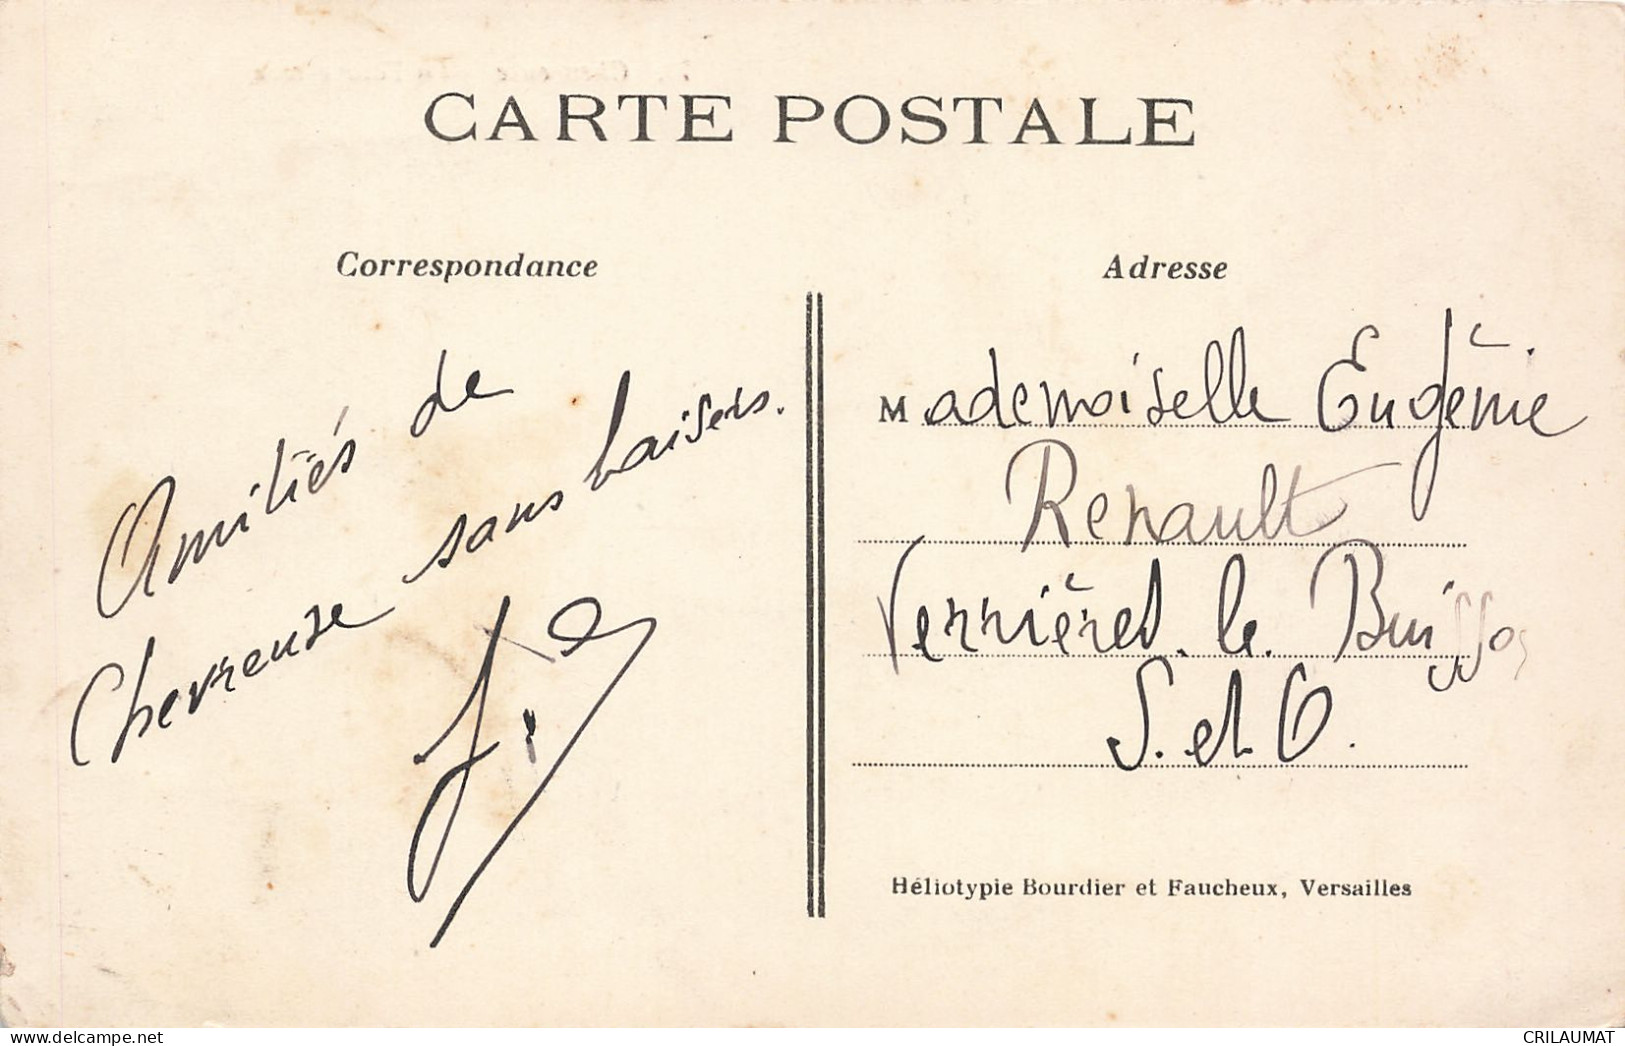 CARTE POSTALE
Correspondance
Amitiés de
Chevreuse sans baisers.
Adresse
Mademoiselle Eugénie
Renault
Verrières. le. Buisson
S. et O.
Héliotypie Bourdier et Faucheux, Versailles
delcampe.net
CRILAUMAT